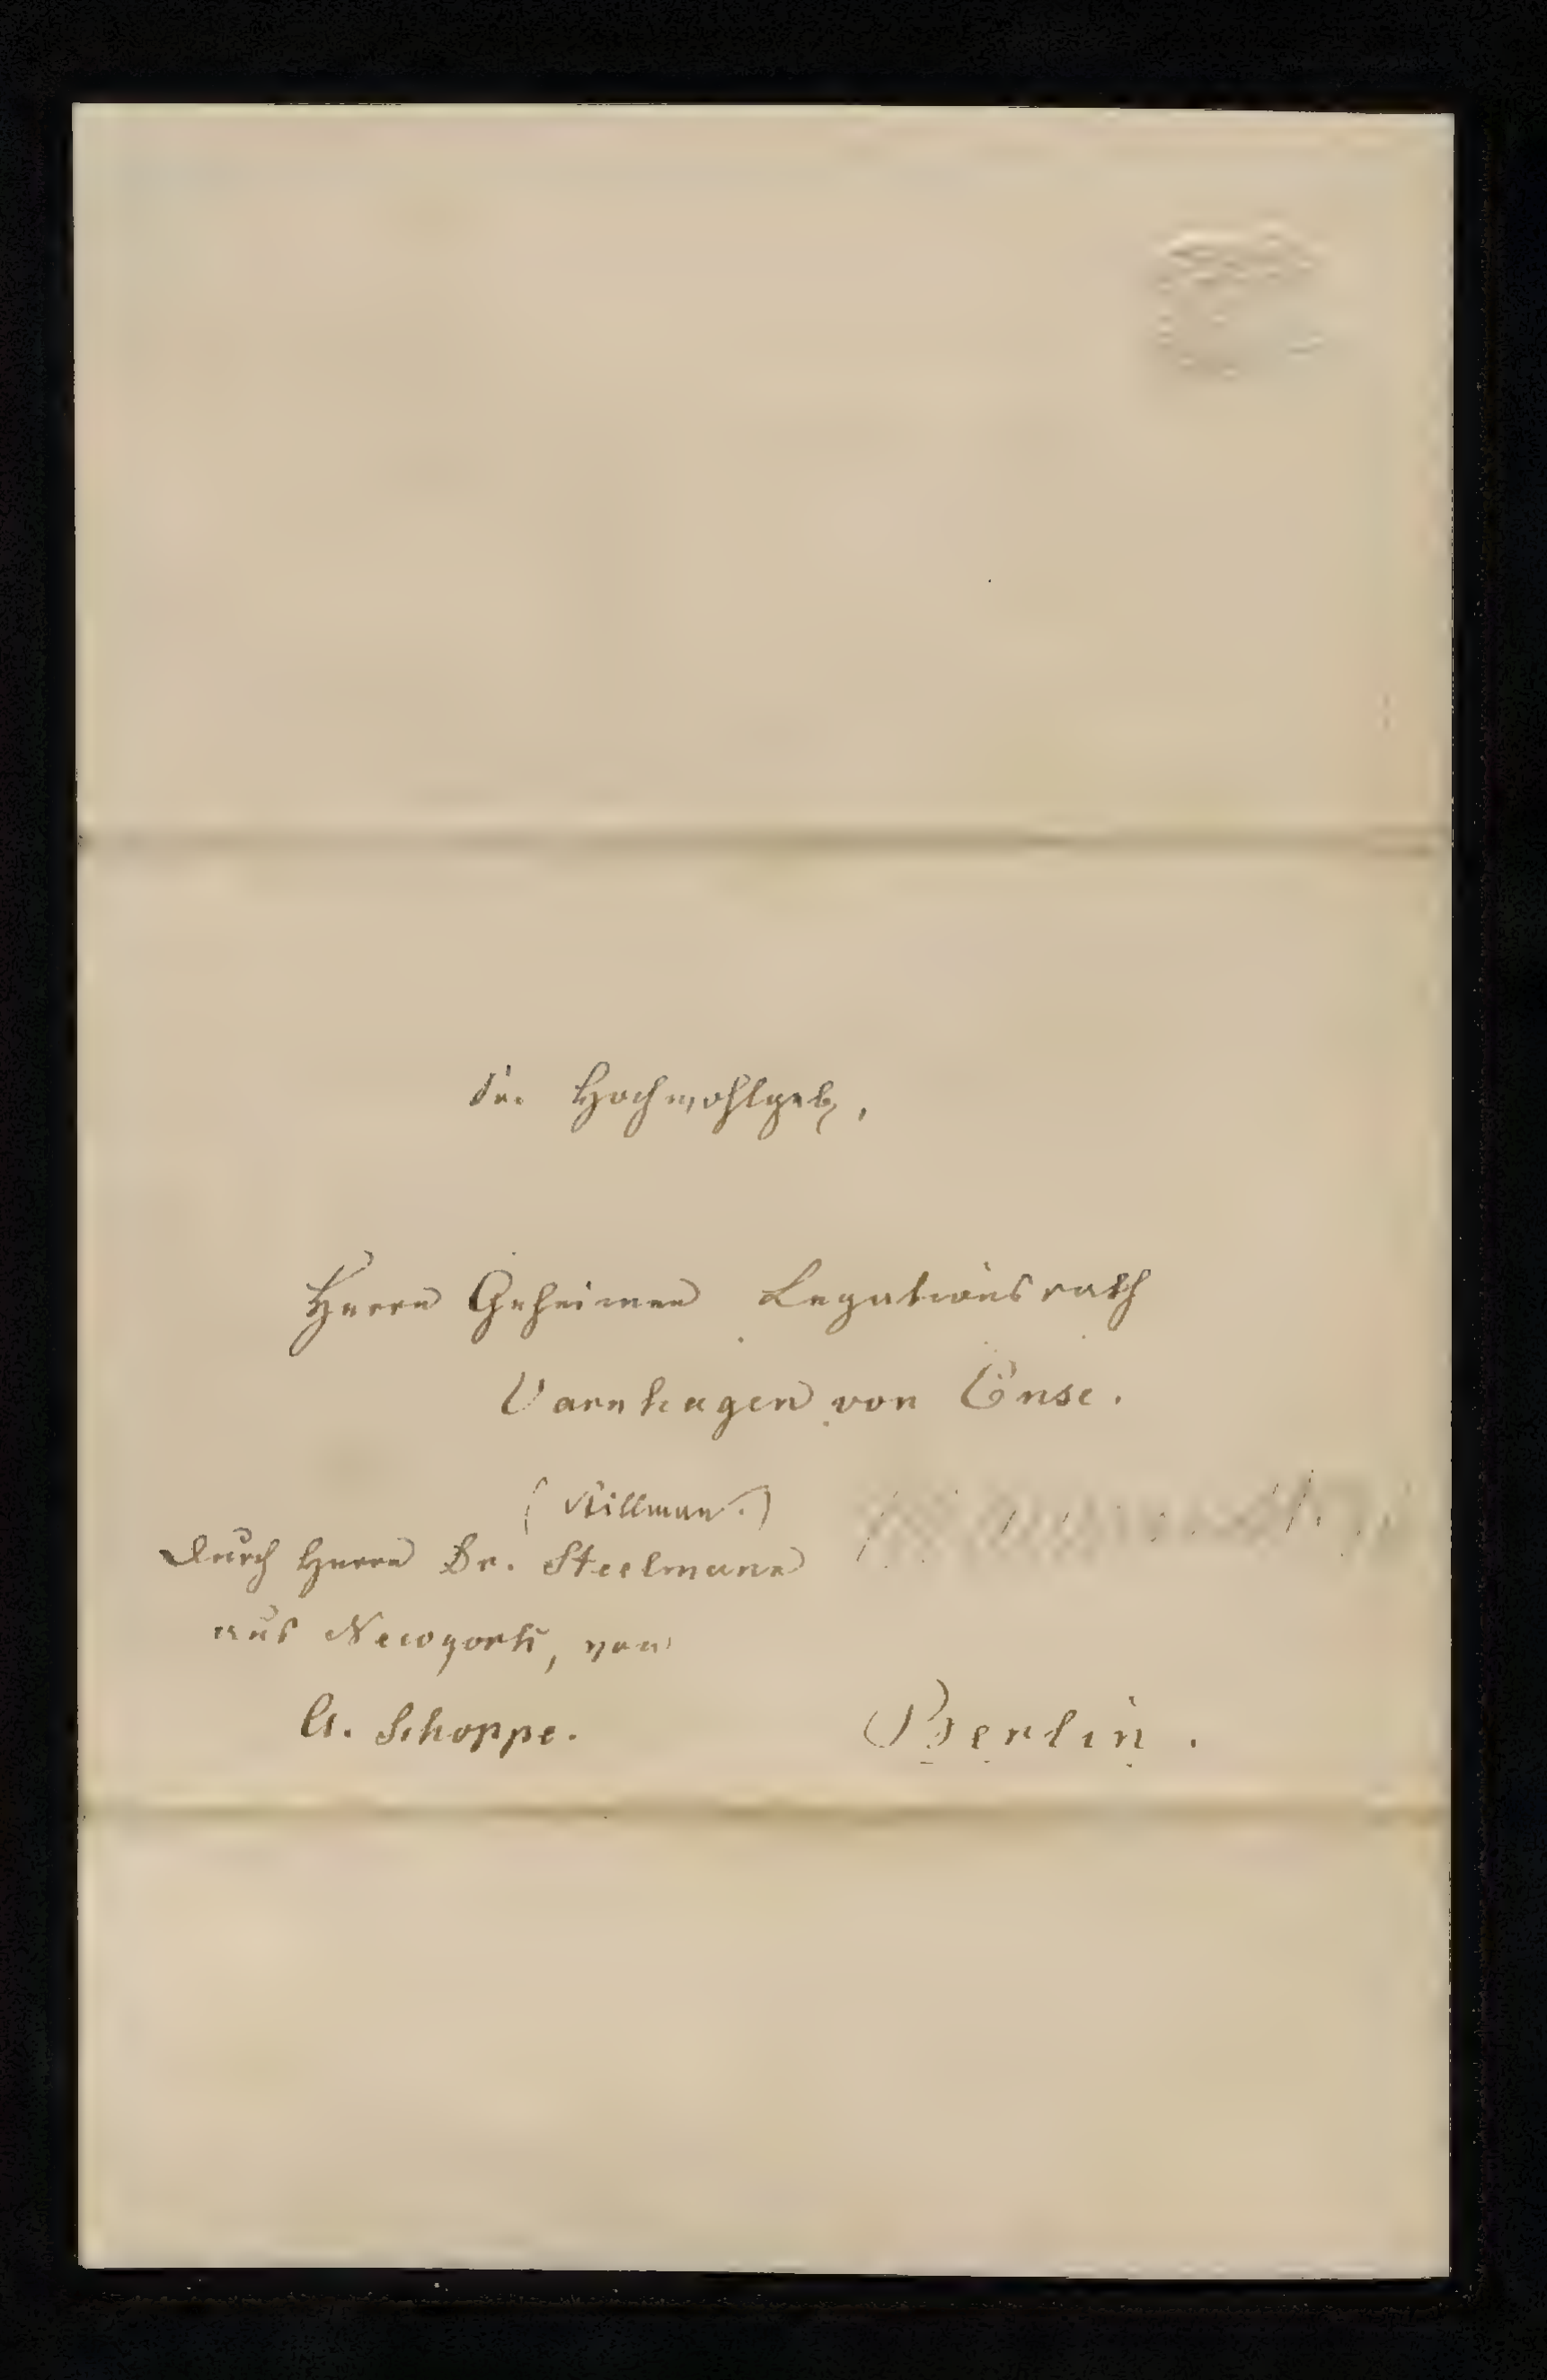 Sr. Hochwohlgeb,
Herrn Geheimen Legationsrath
Varnhagen von Ense.
(Stillman.)
durch Herrn Dr. Steelmann
aus Newyork, von
A. Schoppe.
Berlin.